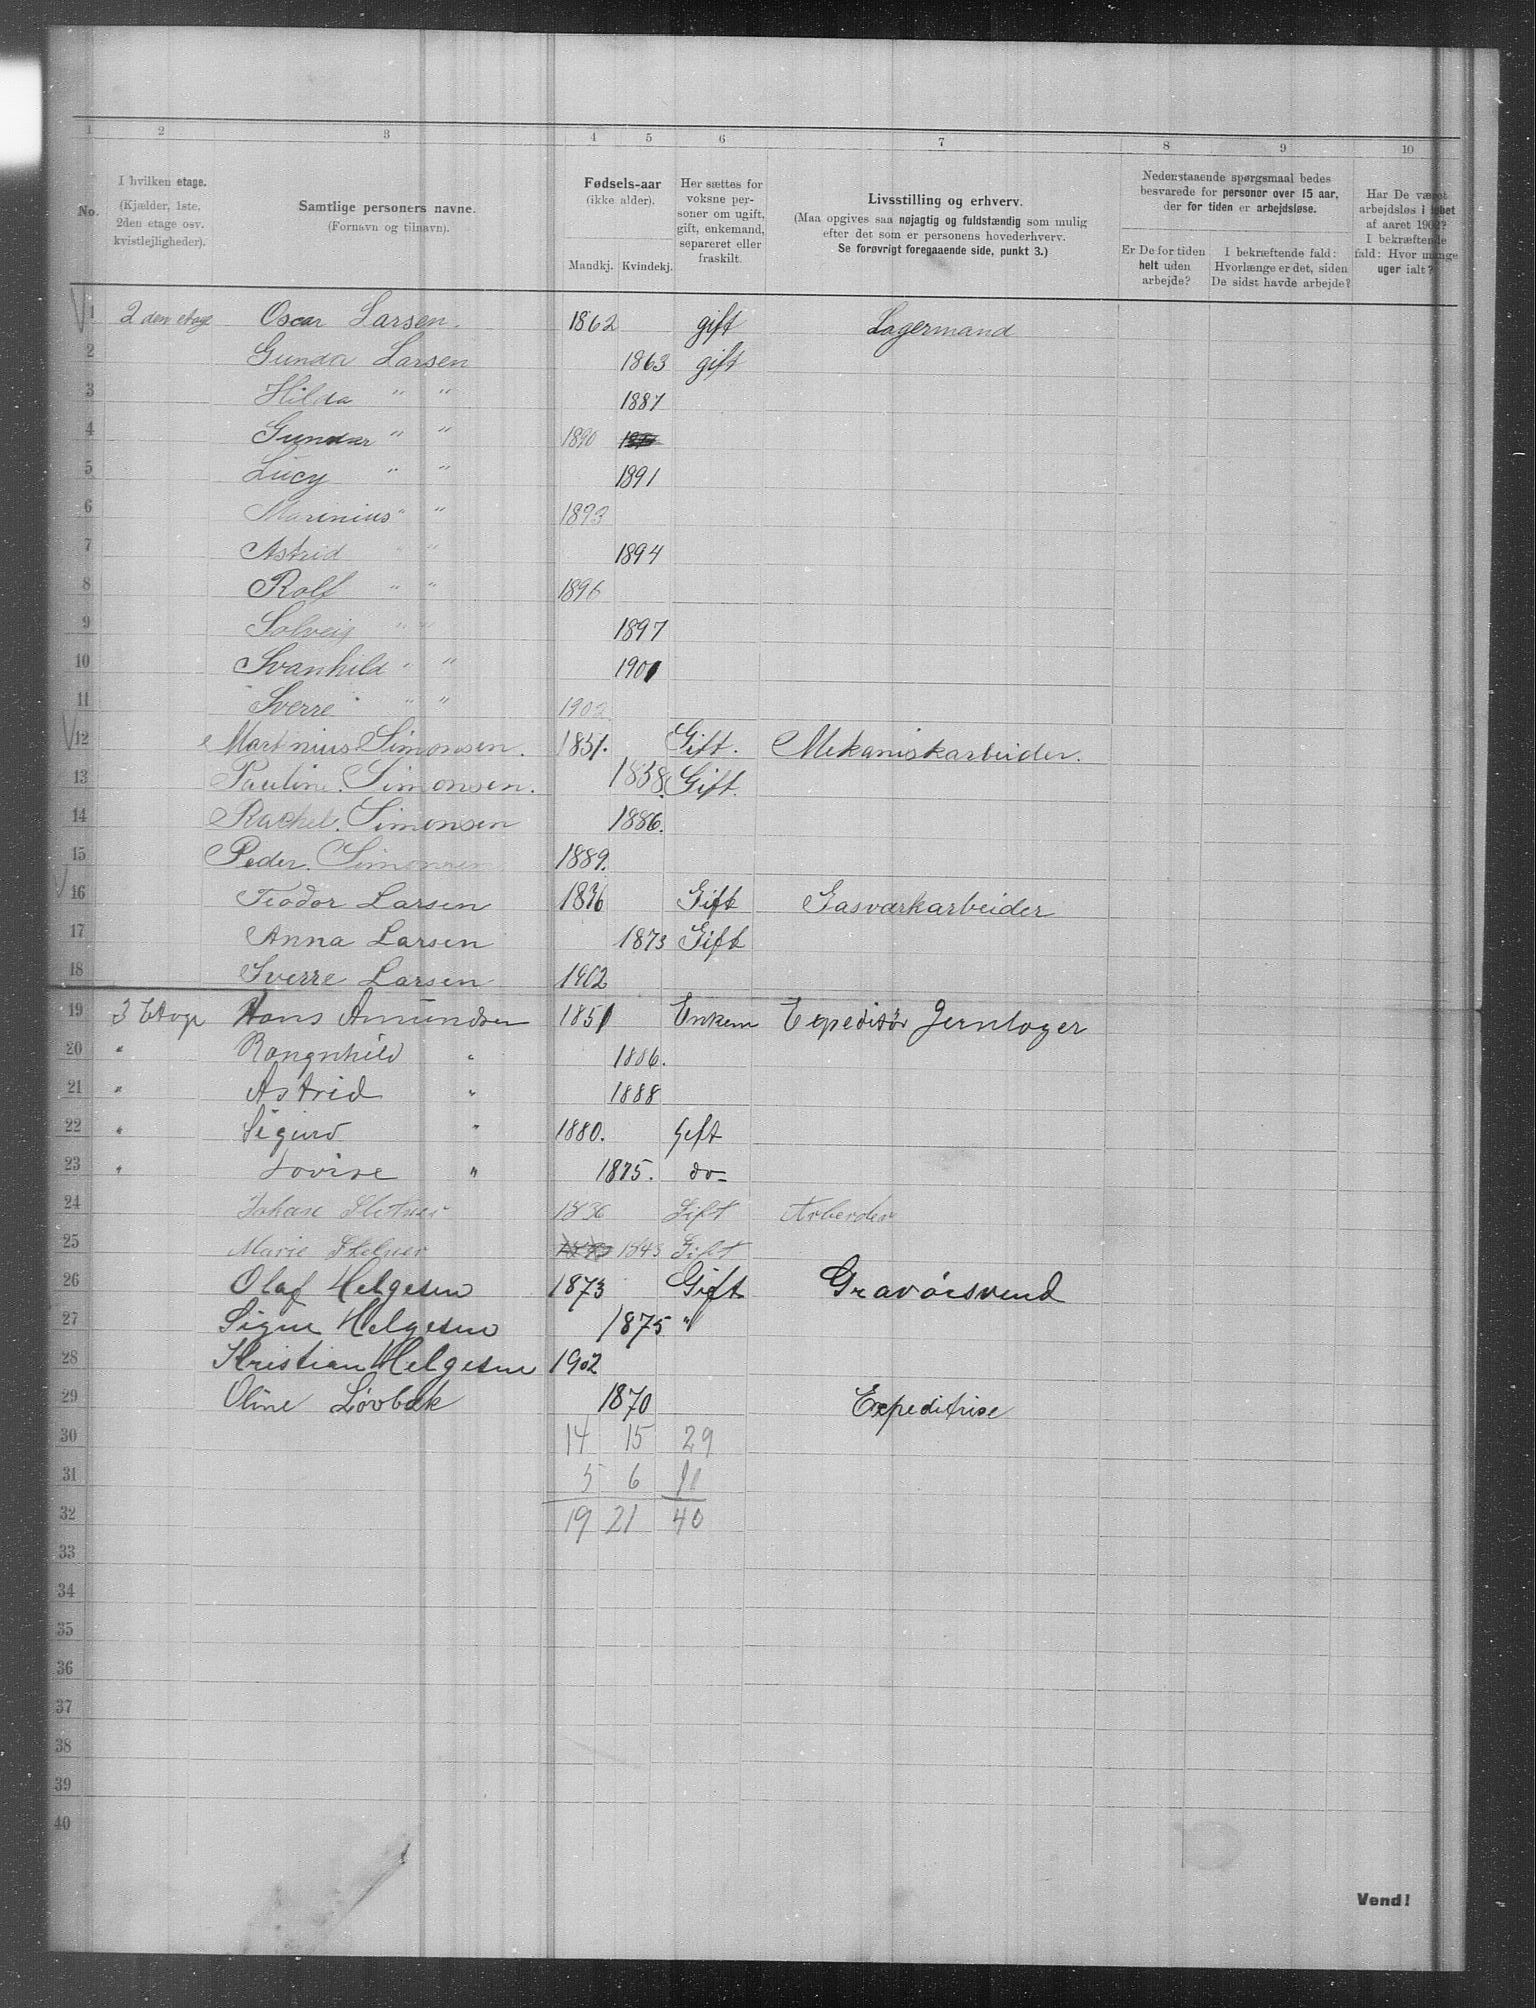 1 2 3 4 5 6 7 8 9 10
No.
I hvilken etage.
(Kjælder, 1ste,
2den etage osv.
kvistlejligheder).
Samtlige personers navne.
(Fornavn og tilnavn).
Fødsels-aar
(ikke alder).
Mandkj. Kvindekj.
Her sættes for
voksne per-
soner om ugift,
gift, enkemand,
separeret eller
fraskilt.
Livsstilling og erhverv.
(Maa opgives saa nøjagtig og fuldstændig som mulig
efter det som er personens hovederhverv.
Se forøvrigt foregaaende side, punkt 3.)
Nedenstaaende spørgsmaal bedes
besvarede for personer over 15 aar,
der for tiden er arbejdsløse.
Er De for tiden
helt uden
arbejde?
I bekræftende fald:
Hvorlænge er det, siden
De sidst havde arbejde?
Har De været
arbejdsløs i løbet
af aaret 1902?
I bekræftende
fald: Hvor mange
uger ialt?
1 2 den etage Oscar Larsen. 1862 gift Lagermand
2 Gunda Larsen 1863 gift
3 Hilda " " 1887
4 Gunnar " " 1890
5 Lucy " " 1891
6 Marinius " " 1893
7 Astrid " " 1894
8 Rolf " " 1896
9 Solveig " " 1897
10 Svanhild " " 1901
11 Sverre " " 1902
12 Martinius Simonsen. 1831. Gift. Mekaniskarbeider.
13 Pauline. Simonsen. 1838. Gift.
14 Rachel. Simonsen 1886.
15 Peder. Simonsen 1889.
16 Teodor Larsen Gift Gasværkarbeider
17 Anna Larsen 1873 Gift
18 Sverre Larsen 1902
19 3 Etage Hans Amundsen 1851 Enkem Expeditør Jernlager
20 " Rangnhild " 1886.
21 " Astrid " 1888
22 " Sigurd " 1880. Gift
23 " Lovise " 1875. do-
24 Johan 1836 Gift Arbeider
25 Marie 1843 Gift
26 Olaf Helgesen 1873 Gift Gravørsvend
27 Signe Helgesen 1875 "
28 Kristian Helgesen 1902
29 Oline Løvbæk 1870 Expeditrise
30 14 15 29
31 5 6 11
32 19 21 40
33
34
35
36
37
38
39
40
Vend!